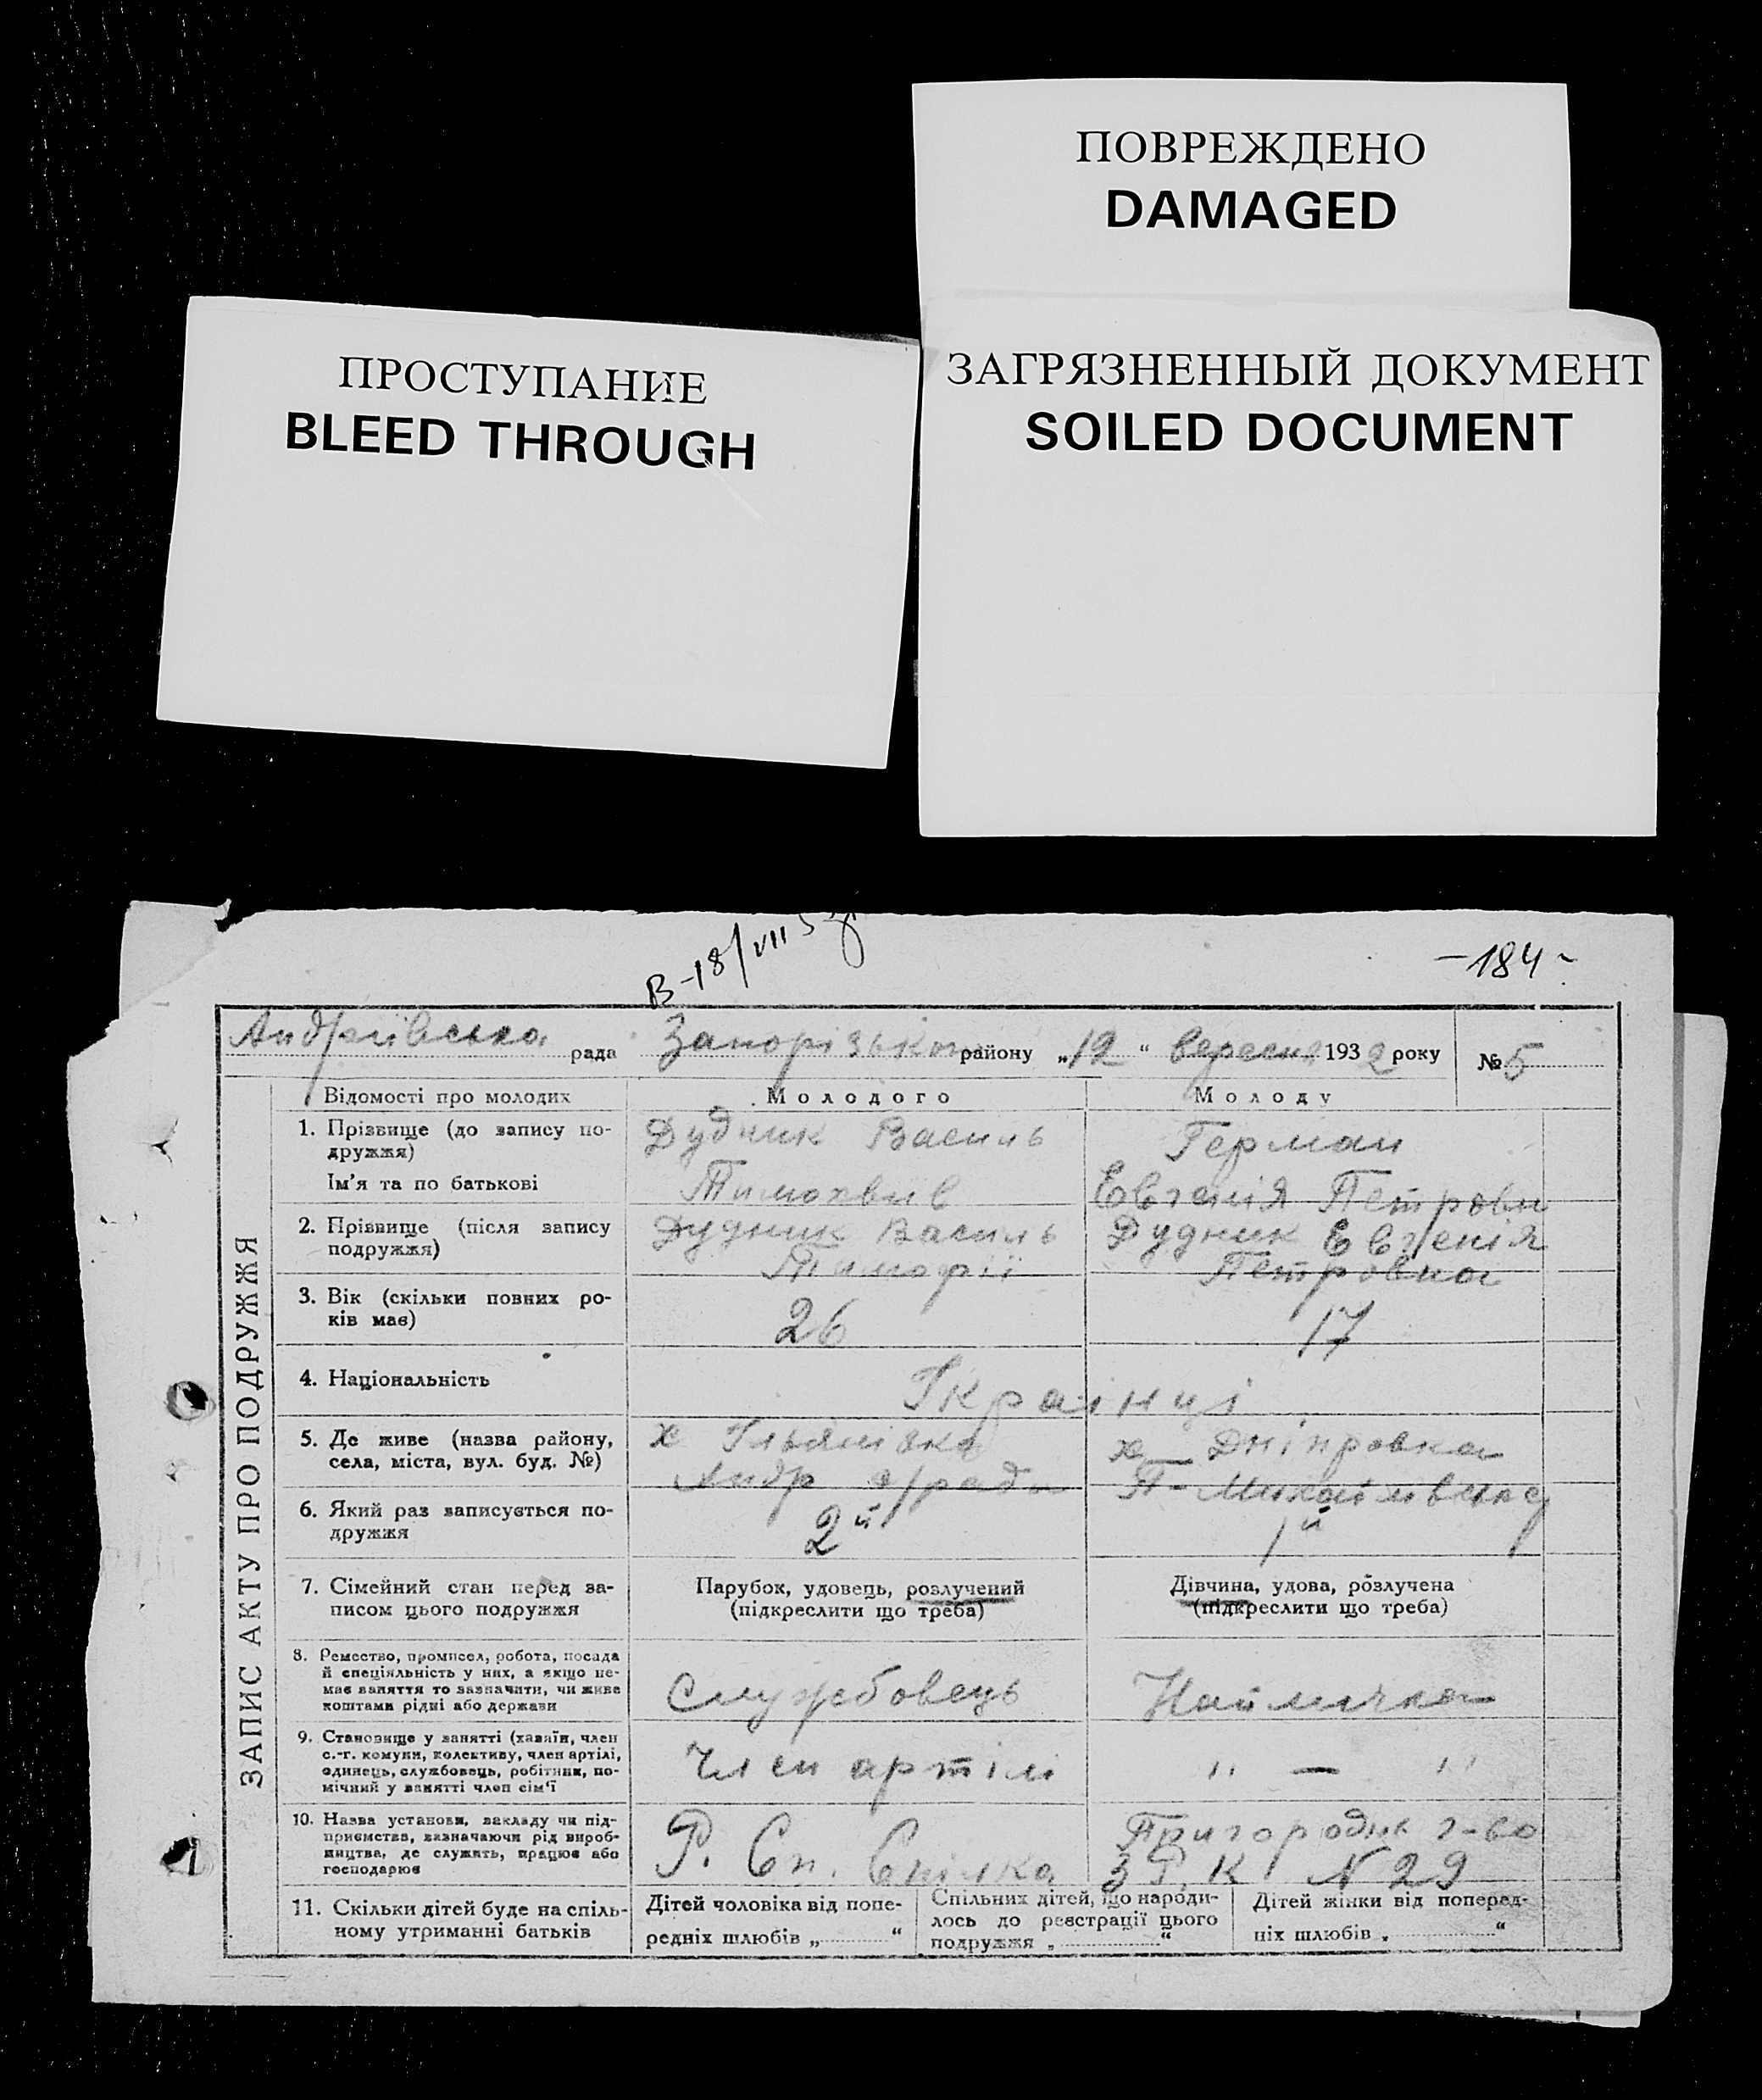 ПОВРЕЖДЕНО
DAMAGED
ПРОСТУПАНИЕ
BLEED THROUGH
ЗАГРЯЗНЕННЫЙ ДОКУМЕНТ
SOILED DOCUMENT
В-18/VII
-184-
Андріївська рада Запорізького району „12“ вересня 1932 року №5
ЗАПИС АКТУ ПРО ПОДРУЖЖЯ
Відомості про молодих
Молодого
Молоду
1. Прізвище (до запису по-
дружжя)
Ім'я та по батькові
Дудник Василь
Тимохвив
Герман
Евгенія Петровн
2. Прізвище (після запису
подружжя)
Дудник Василь
Тимофії
Дудник Евгенія
Петровна
3. Вік (скільки повних ро-
ків має)
26
17
4. Національність
Українці
5. Де живе (назва району,
села, міста, вул. буд. №)
х Ільянівка
Андр с/ради
х Дніпровка
П-Михайлівськ
6. Який раз записується по-
дружжя
2й
1й
7. Сімейний стан перед за-
писом цього подружжя
Парубок, удовець, розлучений
(підкреслити що треба)
Дівчина, удова, розлучена
(підкреслити що треба)
8. Ремество, промисел, робота, посада
й спеціяльність у них, а якщо не-
має заняття то зазначити, чи живе
коштами рідні або держави
Службовець
Наймичка
9. Становище у занятті (хазяїн, член
с.-г. комуни, колективу, член артілі,
одинець, службовець, робітник, по-
мічний у занятті член сім'ї
Член артілі
" — "
10. Назва установи, закладу чи під-
приємства, визначаючи рід вироб-
ництва, де служить, працює або
господарює
Р. Сп. Спілка
Пригороднє г-во
З Р. К N 29
11. Скільки дітей буде на спіль-
ному утриманні батьків
Дітей чоловіка від попе-
редніх шлюбів „ “
Спільних дітей, що народи-
лось до реєстрації цього
подружжя „ “
Дітей жінки від поперед-
ніх шлюбів „ “